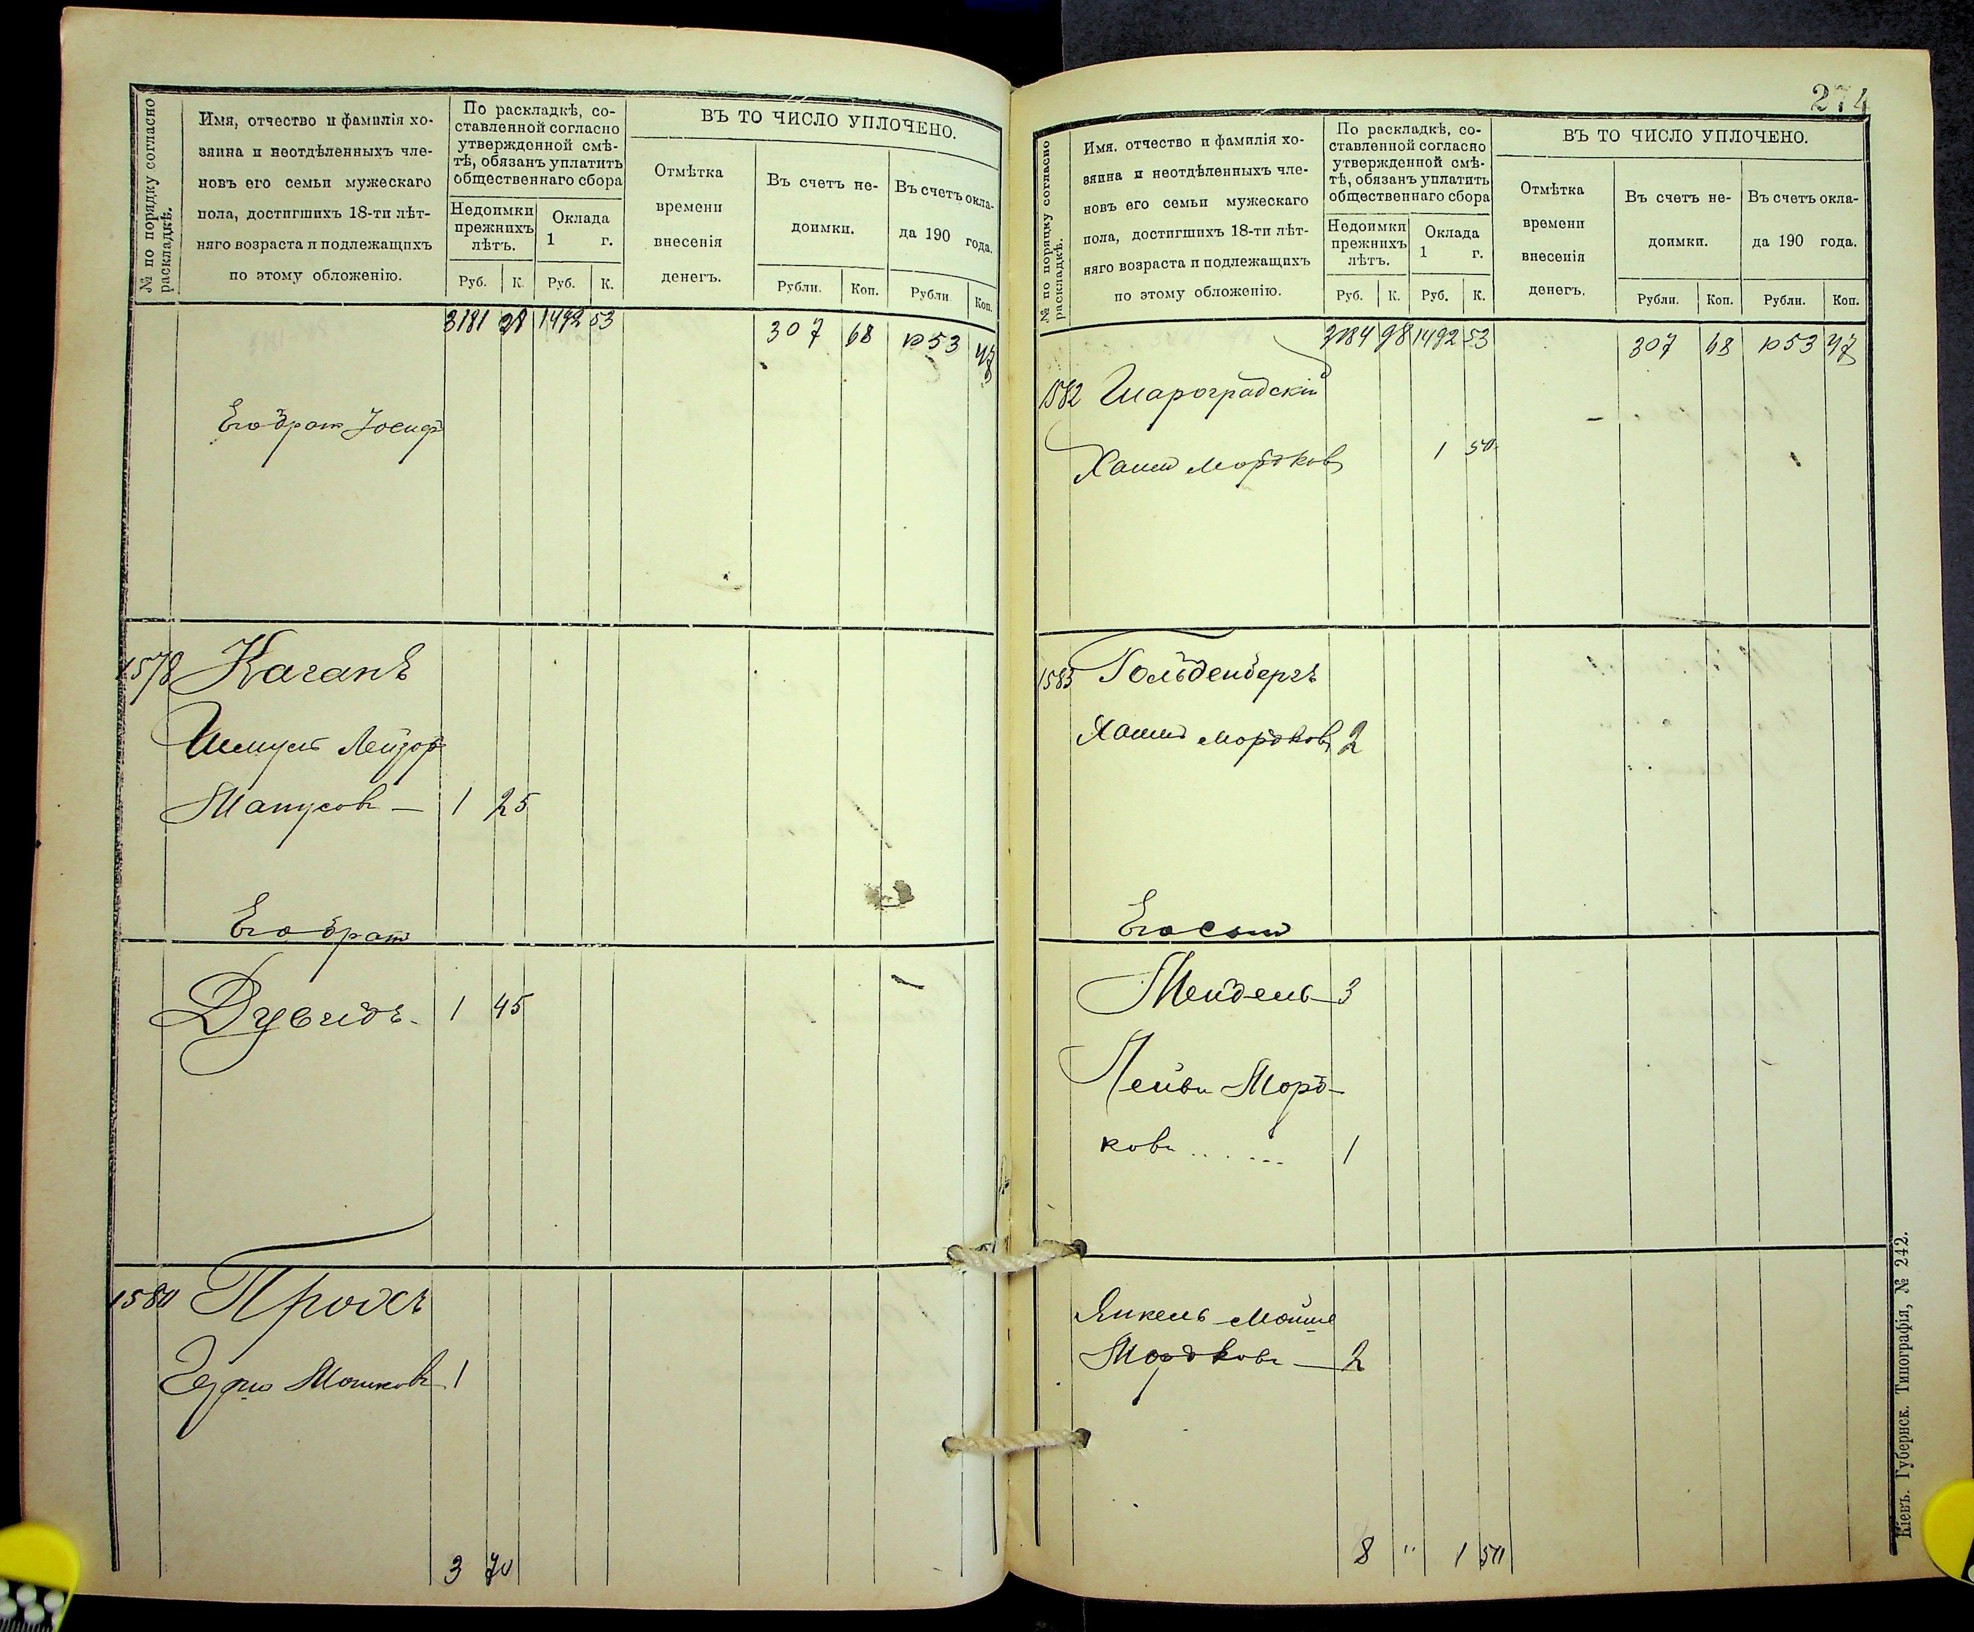 № по порядку согласно раскладкѣ.
Имя, отчество и фамилія хо-
зяина и неотдѣленныхъ чле-
новъ его семьи мужескаго
пола, достигшихъ 18-ти лѣт-
няго возраста и подлежащихъ
по этому обложенію.
По раскладкѣ, со-
ставленной согласно
утвержденной смѣ-
тѣ, обязанъ уплатить
общественнаго сбора
Недоимки
прежнихъ
лѣтъ.
Оклада
1 г.
Руб. К. Руб. К.
ВЪ ТО ЧИСЛО УПЛОЧЕНО.
Отмѣтка
времени
внесенія
денегъ.
Въ счетъ не-
доимки.
Въ счетъ окла-
да 190 года.
Рубли. Коп. Рубли. Коп.
3181 28 1492 53 307 68 1053 47
Его братъ Іосифъ
1578 Каганъ
Шмуль Лейзор
Манусовъ — 1 25
Его братъ
Дувидъ - 1 45
1580
Мошковъ 1
3 70
274
№ по порядку согласно раскладкѣ.
Имя, отчество и фамилія хо-
зяина и неотдѣленныхъ чле-
новъ его семьи мужескаго
пола, достигшихъ 18-ти лѣт-
няго возраста и подлежащихъ
по этому обложенію.
По раскладкѣ, со-
ставленной согласно
утвержденной смѣ-
тѣ, обязанъ уплатить
общественнаго сбора
Недоимки
прежнихъ
лѣтъ.
Оклада
1 г.
Руб. К. Руб. К.
ВЪ ТО ЧИСЛО УПЛОЧЕНО.
Отмѣтка
времени
внесенія
денегъ.
Въ счетъ не-
доимки.
Въ счетъ окла-
да 190 года.
Рубли. Коп. Рубли. Коп.
3184 98 1492 53 307 68 1053 47
1582 Шароградскій
Хаимъ Мордков 1 50
1583 Гольденбергъ
Хаимъ Мордков 2
Его сынъ
Мендель — 3
Лейби Морд-
ковъ ...... 1
Янкель Мойше
Мордковъ — 2
8 " 1 50
Кіевъ. Губернск. Типографія, № 242.